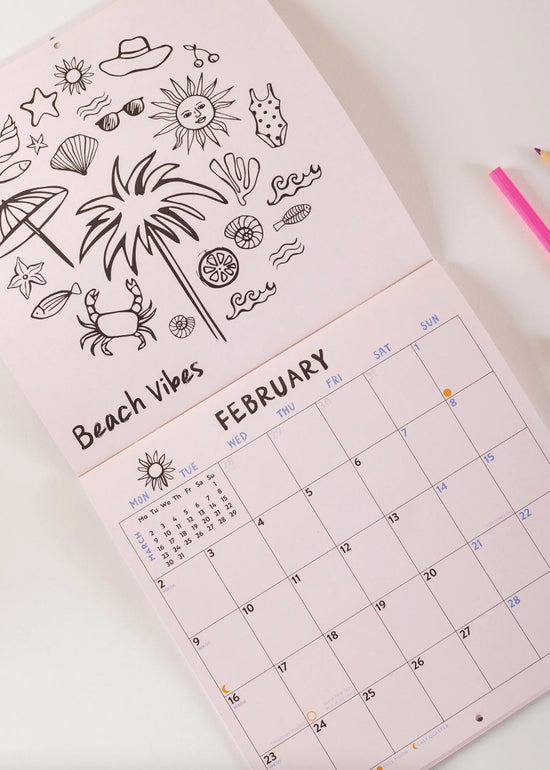 Beach Vibes
FEBRUARY
MON TUE WED THU FRI SAT SUN
MARCH
Mo Tu We Th Fr Sa Su
1
2 3 4 5 6 7 8
9 10 11 12 13 14 15
16 17 18 19 20 21 22
23 24 25 26 27 28 29
30 31
28 1
2 3 4 5 6 7 8
9 10 11 12 13 14 15
16 17 18 19 20 21 22
23 24 25 26 27 28
LAST QUARTER